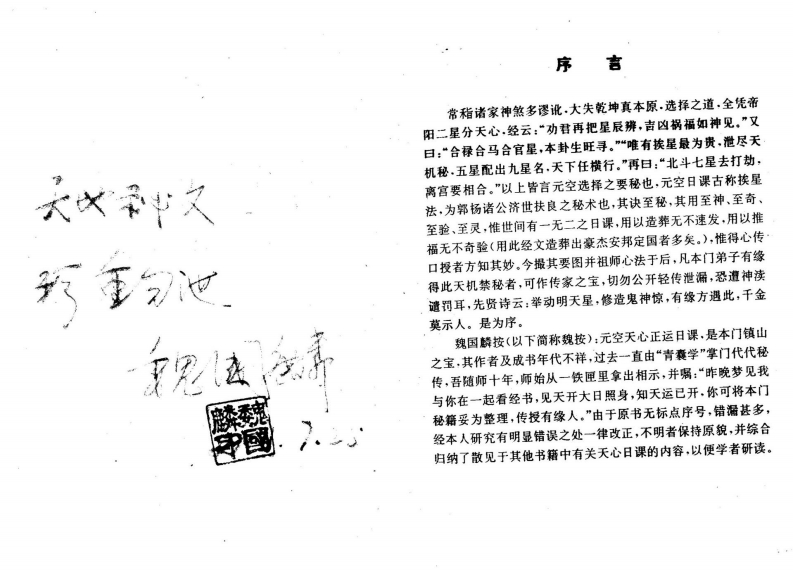 天地神文
珍重勿泄
魏国麟
麟魏
印國
.7.25
序言
常稽诸家神煞多谬讹,大失乾坤真本原,选择之道,全凭帝
阳二星分天心,经云:“劝君再把星辰辨,吉凶祸福如神见。”又
曰:“合禄合马合官星,本卦生旺寻。”“唯有挨星最为贵,泄尽天
机秘,五星配出九星名,天下任横行。”再曰:“北斗七星去打劫,
离宫要相合。”以上皆言元空选择之要秘也,元空日课古称挨星
法,为郭杨诸公济世扶良之秘术也,其诀至秘,其用至神、至奇、
至验、至灵,惟世间有一无二之日课,用以造葬无不速发,用以推
福无不奇验(用此经文造葬出豪杰安邦定国者多矣。),惟得心传
口授者方知其妙。今撮其要图并祖师心法于后,凡本门弟子有缘
得此天机禁秘者,可作传家之宝,切勿公开轻传泄漏,恐遭神渎
谴罚耳,先贤诗云:举动明天星,修造鬼神惊,有缘方遇此,千金
莫示人。是为序。
魏国麟按(以下简称魏按):元空天心正运日课,是本门镇山
之宝,其作者及成书年代不祥,过去一直由“青囊学”掌门代代秘
传,吾随师十年,师始从一铁匣里拿出相示,并嘱:“昨晚梦见我
与你在一起看经书,见天开大日照身,知天运已开,你可将本门
秘籍妥为整理,传授有缘人。”由于原书无标点序号,错漏甚多,
经本人研究有明显错误之处一律改正,不明者保持原貌,并综合
归纳了散见于其他书籍中有关天心日课的内容,以便学者研读。